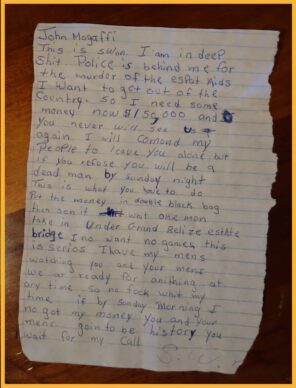 John Mogaffi
This is swon. I am in deep
Shit. Police is behind me for
the murder of the espot Kids
I want to get out of the
Country. So I need some
money now $150,000 and
You never will see us
again I will comond my
People to leave you alone but
if you refuse you will be a
dead man by Sunday night
This is what you have to do
Put the money in double black bag
then sen it wat one man
take in Under Grand Belize estate
bridge I no want no games this
is serios I have my mens
watching you and your mens
we ar ready for anithing at
any time so no fock whit my
time is by Sunday morning I
no got my money you and your
mens goin to be history you
wait for my call